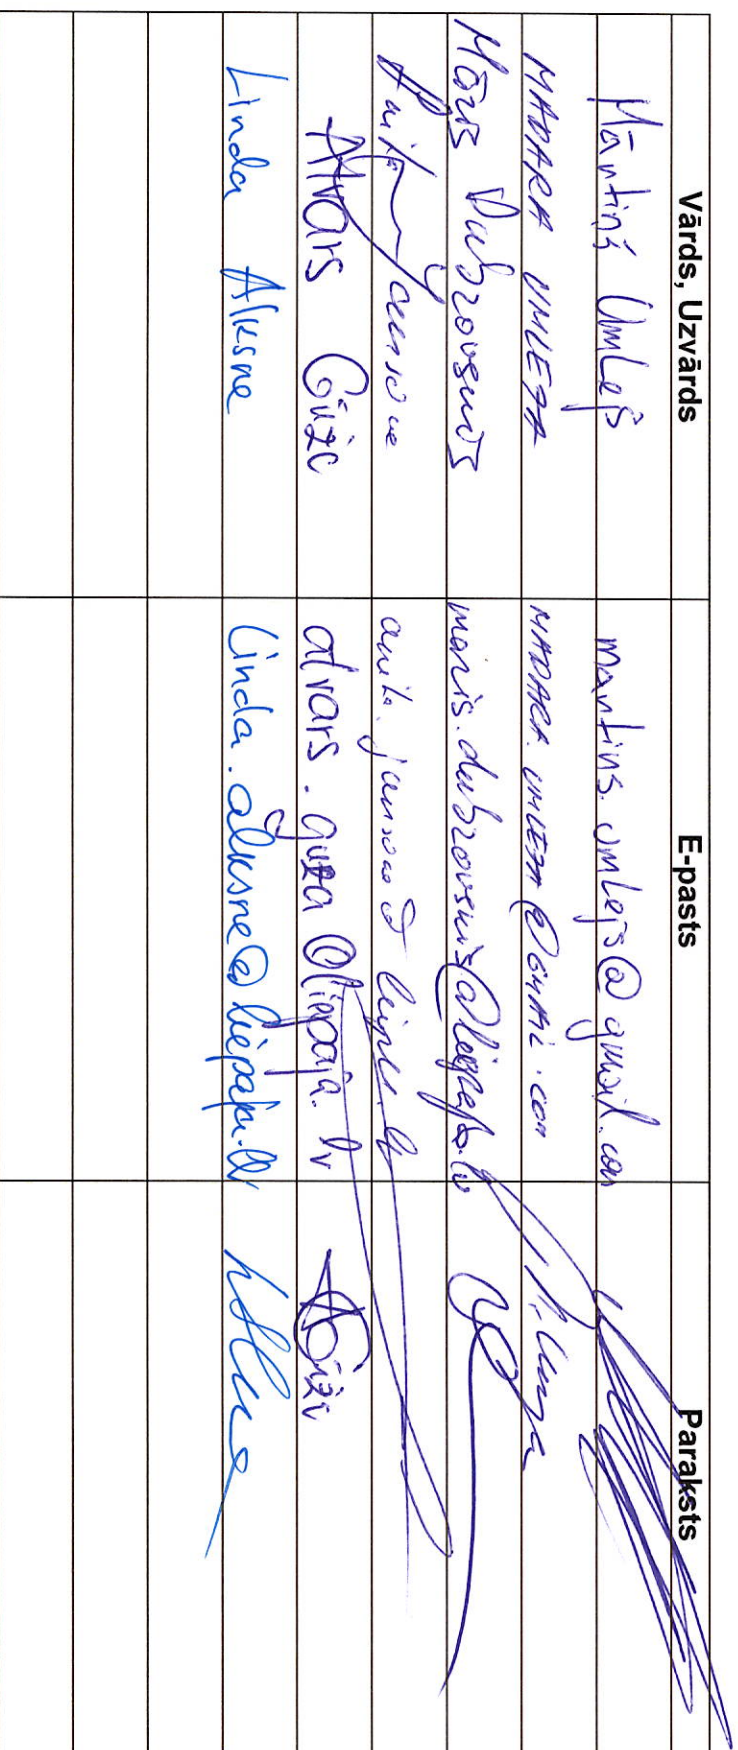 Vārds, Uzvārds E-pasts Paraksts
Mārtiņš Umlejs martins.umlejs@gmail.com
MADARA UMLEJA MADARA.UMLEJA@GMAIL.COM
Māris Dubrovskis maris.dubrovskis@liepaja.lv
Anita Jansone
Atvars Gūža atvars.guza@liepaja.lv
Linda Alksne linda.alksne@liepaja.lv